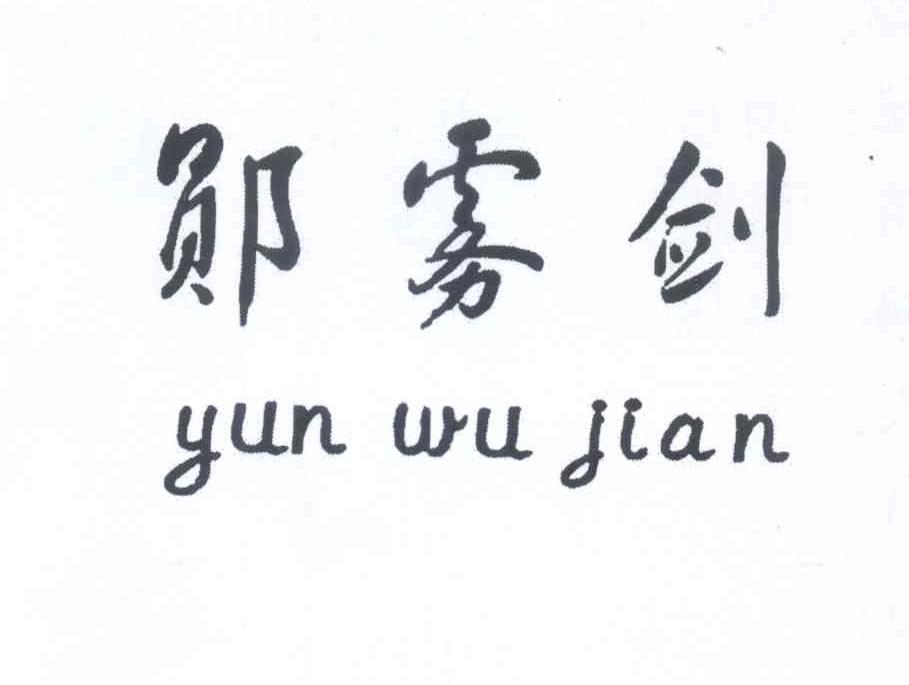 郧雾剑
yun wu jian